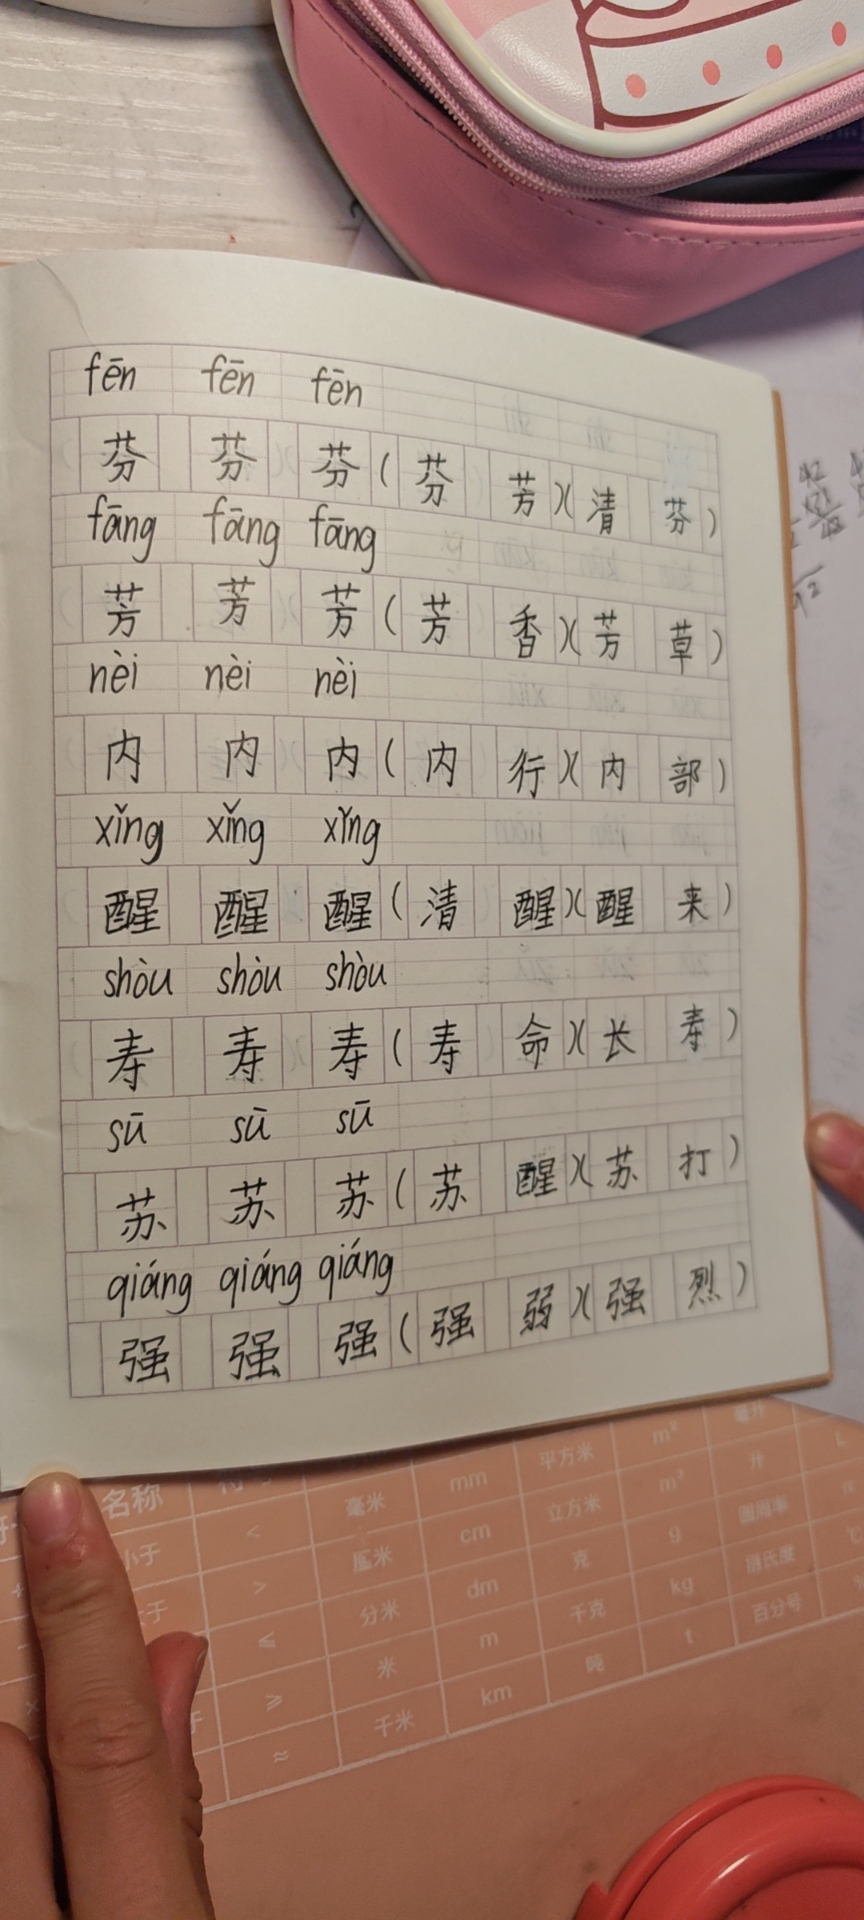 fēn fēn fēn
芬 芬 芬 ( 芬 芳 ) ( 清 芬 )
fāng fāng fāng
芳 芳 芳 ( 芳 香 ) ( 芳 草 )
nèi nèi nèi
内 内 内 ( 内 行 ) ( 内 部 )
xǐng xǐng xǐng
醒 醒 醒 ( 清 醒 ) ( 醒 来 )
shòu shòu shòu
寿 寿 寿 ( 寿 命 ) ( 长 寿 )
sū sū sū
苏 苏 苏 ( 苏 醒 ) ( 苏 打 )
qiáng qiáng qiáng
强 强 强 ( 强 弱 ) ( 强 烈 )
名称 毫米 mm 平方米 m² 毫升
小于 < 厘米 cm 立方米 m³ 升 L
> 分米 dm 克 g 圆周率
≤ 米 m 千克 kg 摄氏度
≥ 千米 km 吨 t 百分号
≈